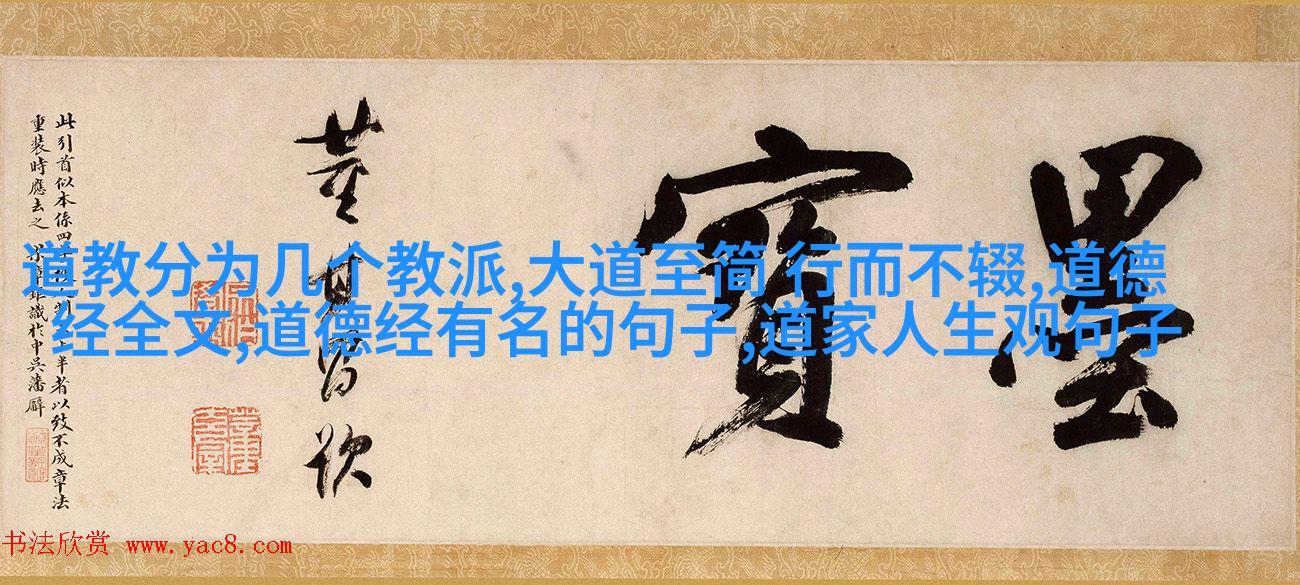 墨寶
董其昌观
此引首似本係四
重装時應去之
半者以致不成章法
識於中吳瀋廨
道教分为几个教派,大道至简 行而不辍,道德
经全文,道德经有名的句子,道家人生观句子
书法欣赏 www.yac8.com